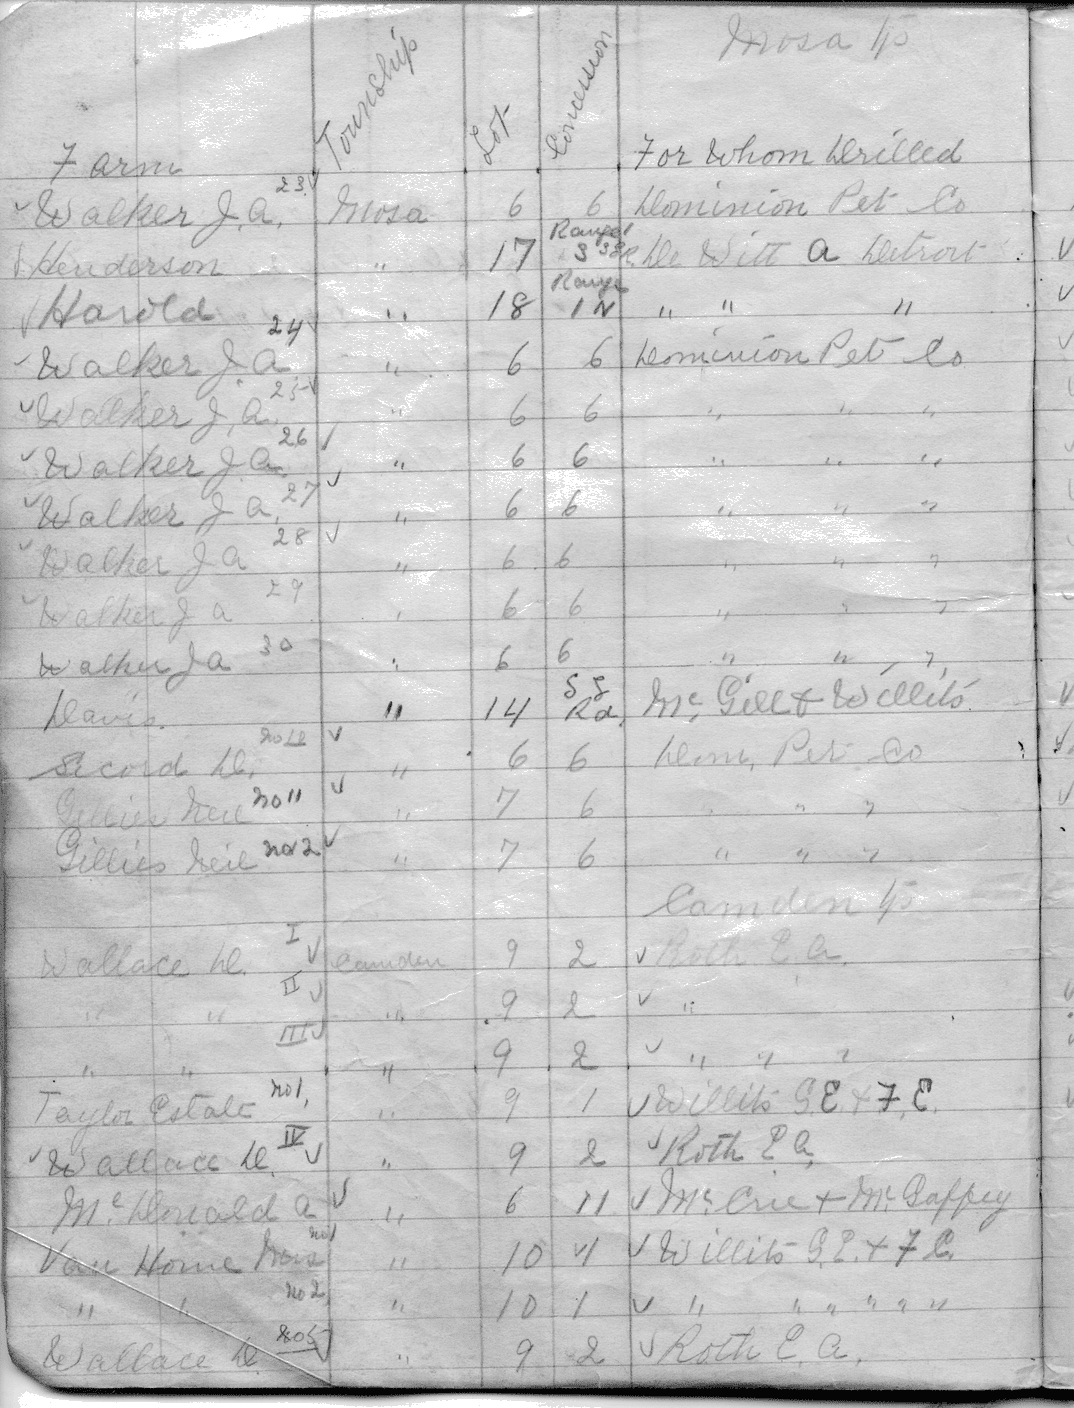 Mosa Tp
Farm Township Lot Concession For Whom Drilled
✓ Walker J. A. 23 ✓ Mosa 6 6 Dominion Pet Co
Henderson " 17 Range 3 De Witt A Detroit
✓ Harold " 18 Range 1 N " " "
✓ Walker J. A 24 ✓ " 6 6 Dominion Pet Co
✓ Walker J. A. 25 ✓ " 6 6 " " "
✓ Walker J. A 26 ✓ " 6 6 " " "
✓ Walker J A. 27 ✓ " 6 6 " " "
✓ Walker J A 28 ✓ " 6 6 " " "
✓ Walker J A 29 " 6 6 " " "
Walker J A 30 " 6 6 " " "
Davis. " 14 Rd. Mc. Gill & Willits
Secord D. ✓ " 6 6 Dom. Pet Co
Gillies Neil No 11 ✓ " 7 6 " " "
Gillies Neil No 2 ✓ " 7 6 " " "
Camden Tp
Wallace D. I ✓ Camden 9 2 ✓ Roth E. A.
" " II ✓ " 9 2 ✓ "
" " III ✓ " 9 2 ✓ " " "
Taylor Estate No 1, " 9 1 ✓ Willits G. E. & F. E.
✓ Wallace D. IV ✓ " 9 2 ✓ Roth E A.
Mc. Donald A ✓ " 6 11 ✓ Mc. Crie & Mc. Gaffey
Van Horne No 1 " 10 1 ✓ Willits G. E. & F E.
" " No 2 " 10 1 ✓ " " " " " "
Wallace D. No 5 ✓ " 9 2 ✓ Roth E. A.